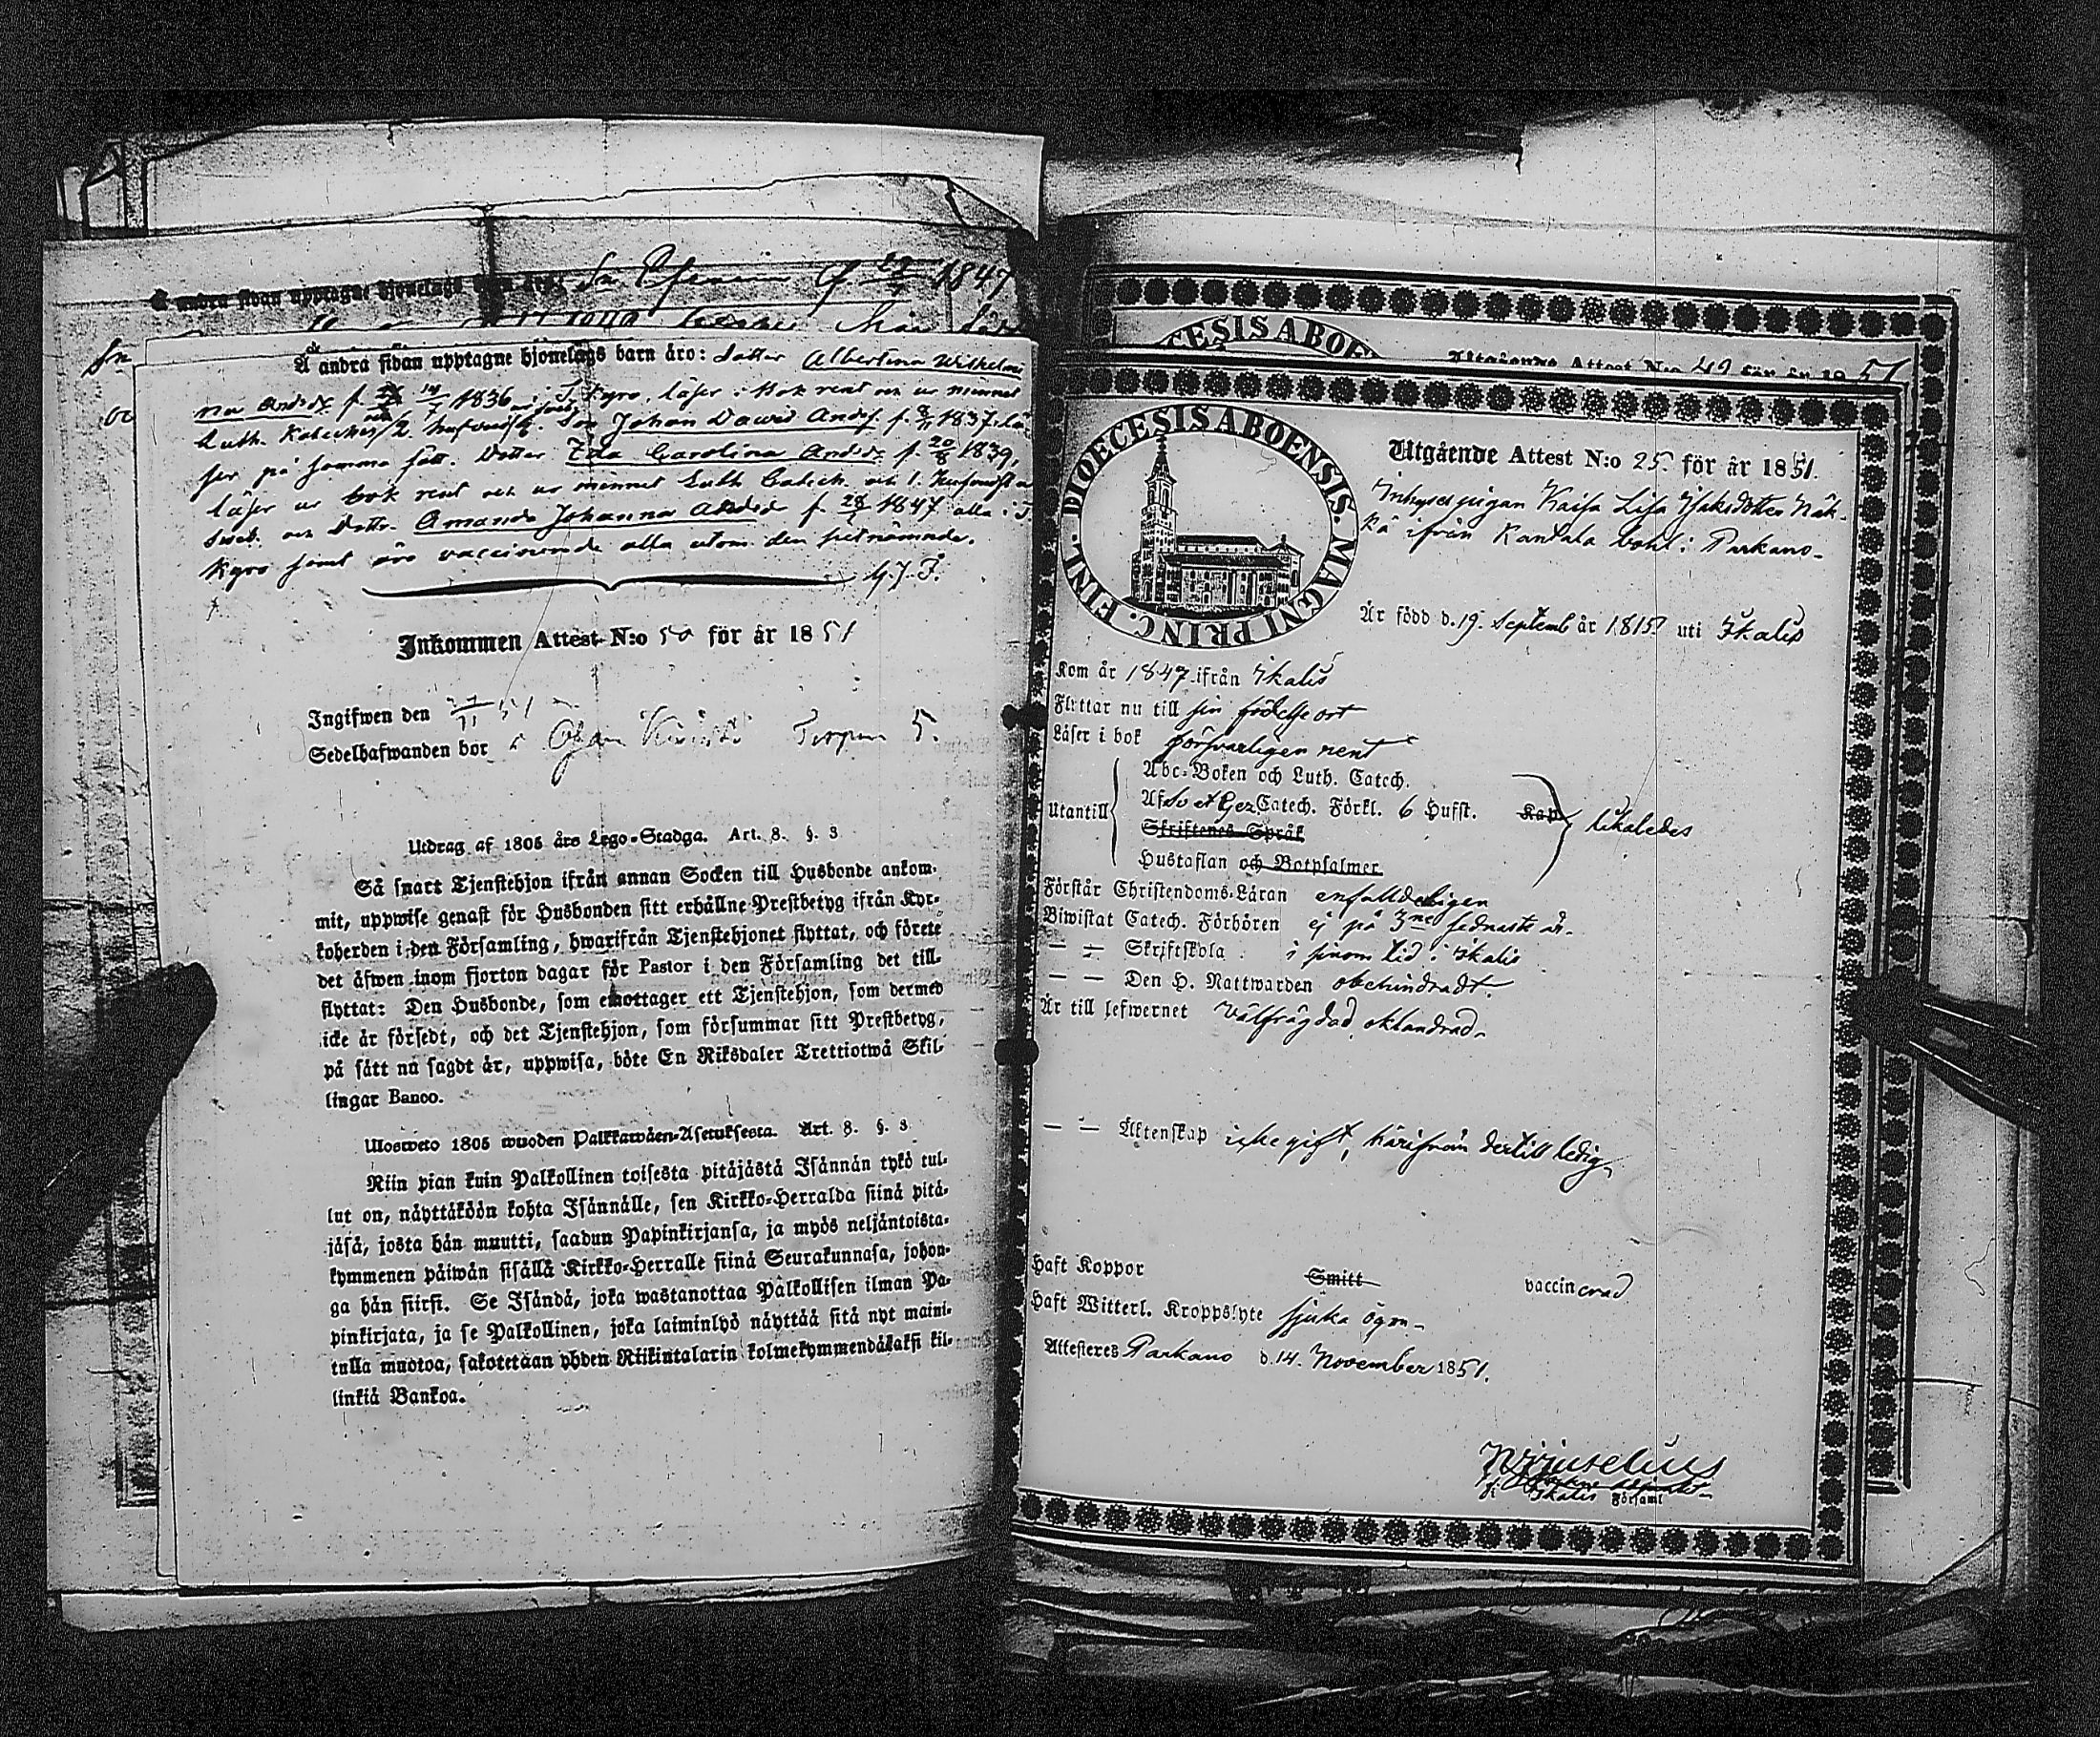 Å andra sidan upptagne hjonelags
1847
Å andra sidan upptagne hjonelags barn äro: dotter Albertina Wilhelmi
na Andsdr f. 19/7 1836 i T. Kyro, läser i bok rent och ur minnet
Luth. Kateches 2. hufvudst. Son Johan Dawid Andsf. f. 1837, lä
ser på samma sätt. Dotter Ida Carolina Andsdr f. 20/8 1839,
läser ur bok rent och ur minnet Luth. Catech. och 1. Hufvudst
och Dottr. Amanda Johanna Andsdr f. 28 1847 alla i T
Kyro samt äro vaccinerade alla utom den sistnämnde.
G. J. F.
Inkommen Attest N:o 50 för år 1851
Ingifwen den 51
Sedelhafwanden bor
Utdrag af 1805 års Lego-Stadga. Art. 8. §. 3
Så snart Tjenstehjon ifrån annan Socken till Husbonde ankom-
mit, uppwise genast för Husbonden sitt erhållne Prestbetyg ifrån Kyr-
koherden i den Församling, hwarifrån Tjenstehjonet flyttat, och förete
det äfwen inom fjorton dagar för Pastor i den Församling det till-
flyttat: Den Husbonde, som emottager ett Tjenstehjon, som dermed
icke är försedt, och det Tjenstehjon, som försummar sitt Prestbetyg,
på sätt nu sagdt är, uppwisa, böte En Riksdaler Trettiotwå Skil-
lingar Banco.
Ulosweto 1805 wuoden Palkkawäen-Asetuksesta. Art. 8. §. 3
Niin pian kuin Palkollinen toisesta pitäjästä Isännän tykö tul-
lut on, näyttäköön kohta Isännälle, sen Kirkko-Herralda siinä pitä-
jäsä, josta hän muutti, saadun Papinkirjansa, ja myös neljäntoista-
kymmenen päiwän sisällä Kirkko-Herralle siinä Seurakunnasa, johon-
ga hän siirsi. Se Isändä, joka wastanottaa Palkollisen ilman Pa-
pinkirjata, ja se Palkollinen, joka laiminlyö näyttää sitä nyt maini-
tulla muotoa, sakotetaan yhden Riikintalarin kolmekymmendäkaksi kil-
linkiä Bankoa.
DIOECESIS ABOE
Utgående Attest N:o 49 för år 1851
DIOECESIS ABOENSIS. MAGNI PRINC. FINL.
Utgående Attest N:o 25. för år 1851.
Inhyses pigan Kaisa Lisa Isaksdotter Näk-
kä ifrån Kantala bohl i Parkano
Är född d. 19. Septemb år 1815 uti Ikalis
Kom år 1847 ifrån Ikalis
Flyttar nu till sin födelse ort
Läser i bok försvarligen rent
Utantill
Abc-Boken och Luth. Catech.
Af Sv. et Gez. Catech. Förkl. 6 Hufst. Kap
Skriftenes Språk
Hustaflan och Botpsalmer
likaledes
Förstår Christendoms-Läran enfalldeligen
Biwistat Catech. Förhören ej på 3ne sednaste år.
— — Skriftskola i sinom tid i Ikalis
— — Den H. Nattwarden obehindradt.
Är till lefwernet välfrägdad, oklandrad
— — Äktenskap icke gift, härifrån dertill ledig
Haft Koppor Smitt vaccinerad
Haft Witterl. Kroppslyte sjuka ögon
Attesteres Parkano d. 14. November 1851.
Ikalis Församl